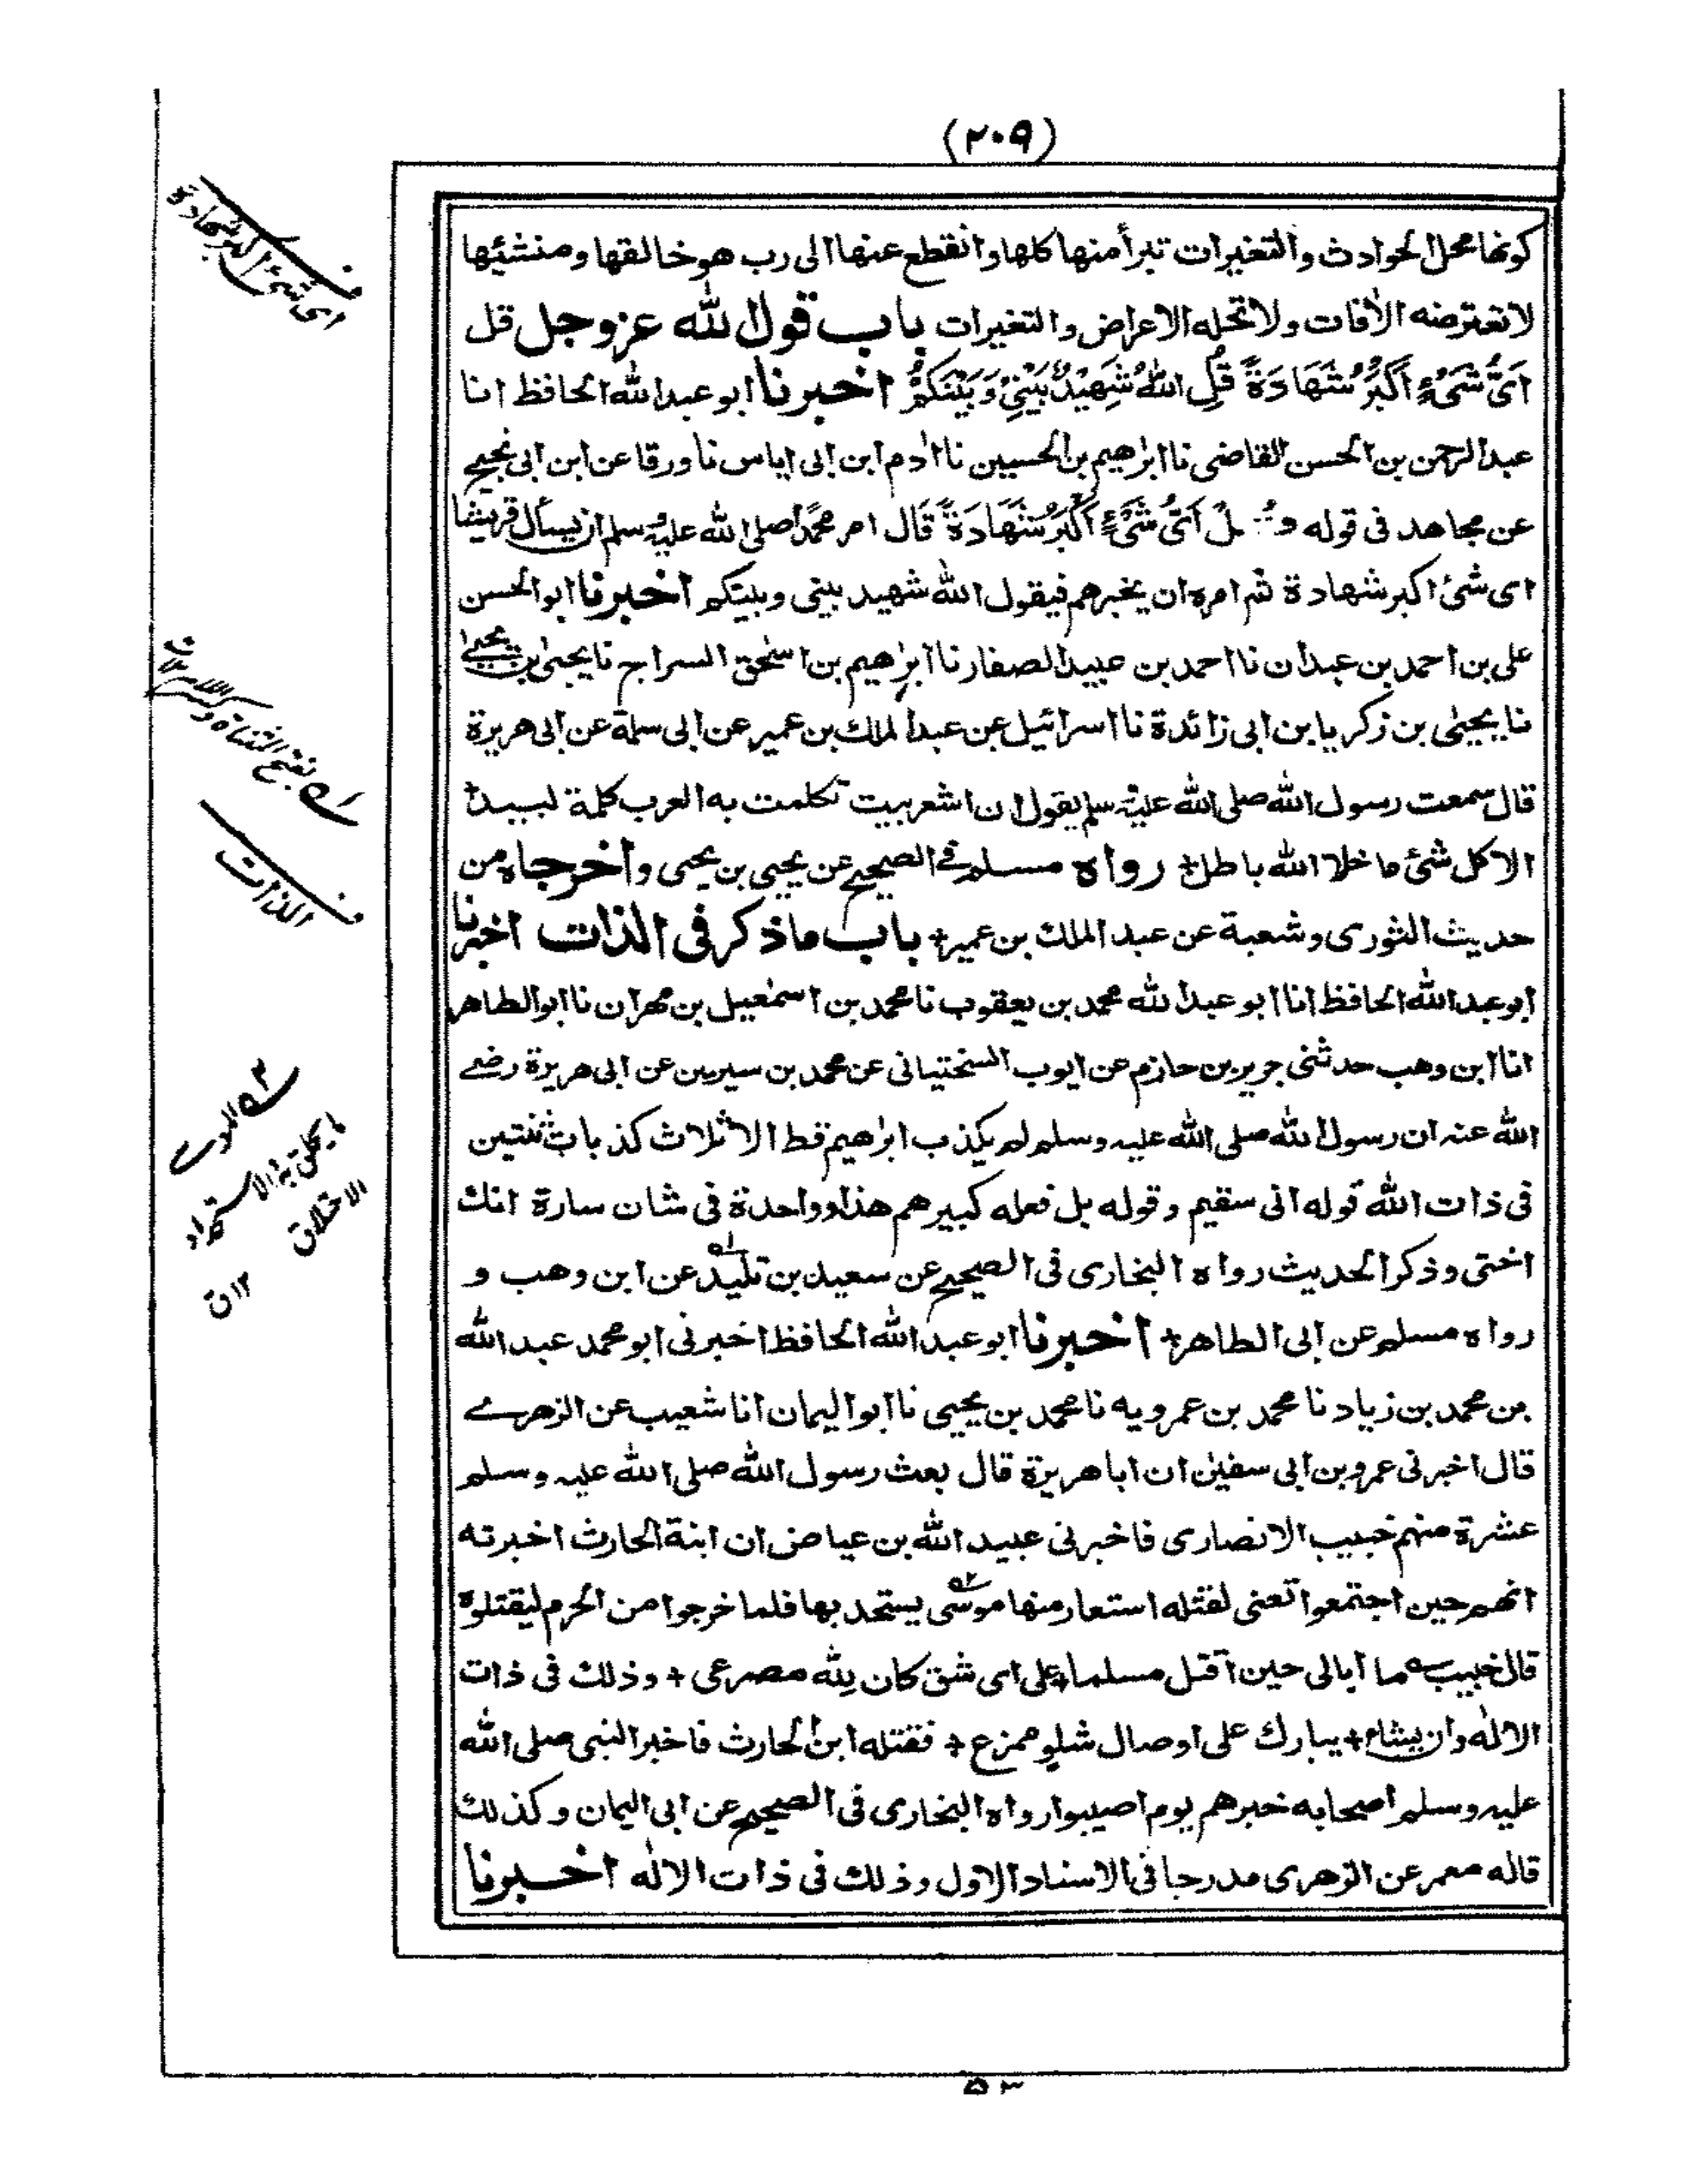 (٢٠٩)
كونها محل الحوادث والتغيرات تبرأ منها كلها وانقطع عنها الى رب هو خالقها ومنشئها
لا تعترضه الآفات ولا تحله الاعراض والتغيرات باب قول الله عزوجل قل
اَىُّ شَىْءٍ اَكْبَرُ شَهَادَةً قُلِ اللهُ شَهِيْدٌ بَيْنِىْ وَبَيْنَكُمْ اخبرنا ابو عبد الله الحافظ انا
عبد الرحمن بن الحسن القاضى نا ابرٰهيم بن الحسين نا ادم ابن ابى اياس نا ورقا عن ابن ابى نجيح
عن مجاهد فى قوله قُلْ اَىُّ شَىْءٍ اَكْبَرُ شَهَادَةً قَال امر محمدًا صلى الله عليه وسلم ان يسأل قريشا
اى شئ اكبر شهادة ثم امره ان يخبرهم فيقول الله شهيد بينى وبينكم اخبرنا ابو الحسن
على بن احمد بن عبدان نا احمد بن عبيد الصفار نا ابرٰهيم بن اسحٰق السراج نا يحيى بن يحيى
نا يحيىٰ بن زكريا بن ابى زائدة نا اسرائيل عن عبد الملك بن عمير عن ابى سلمة عن ابى هريرة
قال سمعت رسول الله صلى الله عليه وسلم يقول ان اشعر بيت تكلمت به العرب كلمة لبيد+
الا كل شئ ما خلا الله باطل+ رواه مسلم فى الصحيح عن يحيى بن يحيى واخرجاه من
حديث الثورى وشعبة عن عبد الملك بن عمير+ باب ما ذكر فى الذات اخبرنا
ابو عبد الله الحافظ انا ابو عبد الله محمد بن يعقوب نا محمد بن اسمٰعيل بن مهران نا ابو الطاهر
انا ابن وهب حدثنى جرير بن حازم عن ايوب السختيانى عن محمد بن سيرين عن ابى هريرة رضى
الله عنه ان رسول الله صلى الله عليه وسلم لم يكذب ابرٰهيم قط الا ثلاث كذبات ثنتين
فى ذات الله قوله انى سقيم وقوله بل فعله كبيرهم هذا وواحدة فى شان سارة انك
اختى وذكر الحديث رواه البخارى فى الصحيح عن سعيد بن تليد عن ابن وهب و
رواه مسلم عن ابى الطاهر+ اخبرنا ابو عبد الله الحافظ اخبرنى ابو محمد عبد الله
بن محمد بن زياد نا محمد بن عمرويه نا محمد بن يحيى نا ابو اليمان انا شعيب عن الزهرى
قال اخبرنى عمرو بن ابى سفيٰن ان ابا هريرة قال بعث رسول الله صلى الله عليه وسلم
عشرة منهم خبيب الانصارى فاخبرنى عبيد الله بن عياض ان ابنة الحارث اخبرته
انهم حين اجتمعوا تعنى لقتله استعار منها موسى يستحد بها فلما خرجوا من الحرم ليقتلوه
قال خبيب ما ابالى حين اقتل مسلما+ على اى شق كان لله مصرعى + وذلك فى ذات
الالٰه وان يشاء+ يبارك على اوصال شلو ممزع + فقتله ابن الحارث فاخبر النبى صلى الله
عليه وسلم اصحابه خبرهم يوم اصيبوا رواه البخارى فى الصحيح عن ابى اليمان وكذلك
قاله معمر عن الزهرى مدرجا فى الاسناد الاول وذلك فى ذات الالٰه اخبرنا
اى شئ اكبر شهادة
الذات
٥٣